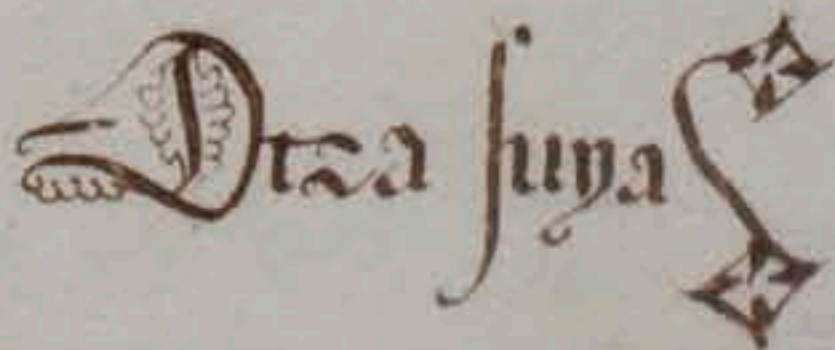 Otra suya